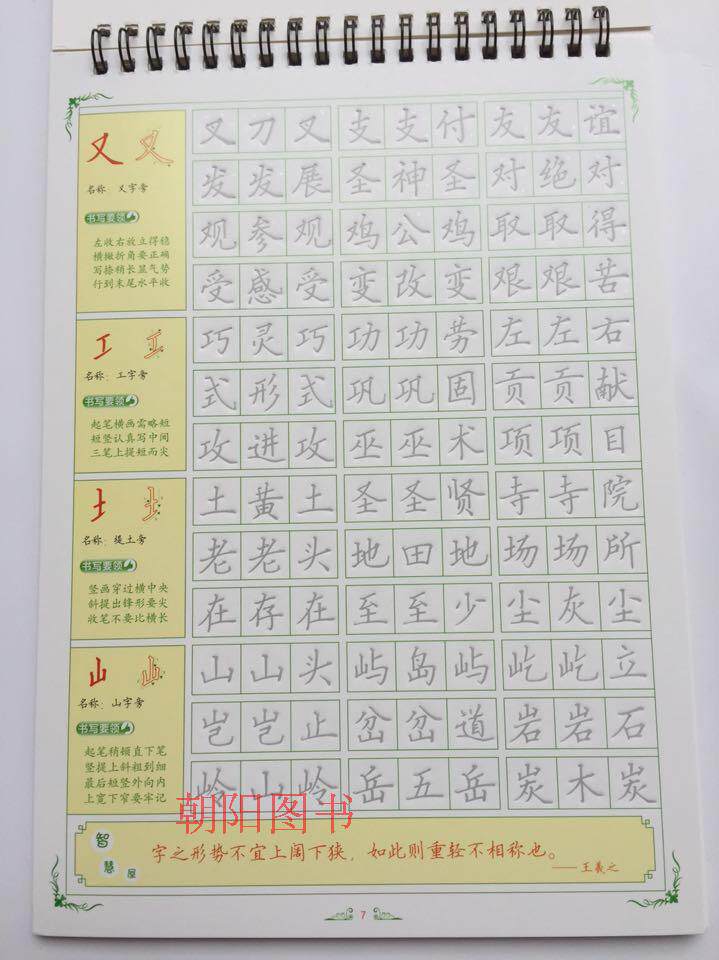 又 又
名称:又字旁
书写要领
左收右放立得稳
横撇折角要正确
写捺稍长显气势
行到末尾水平收
叉 刀 叉 支 支 付 友 友 谊
发 发 展 圣 神 圣 对 绝 对
观 参 观 鸡 公 鸡 取 取 得
受 感 受 变 改 变 艰 艰 苦
工 工
名称:工字旁
书写要领
起笔横画需略短
短竖认真写中间
三笔上提短而尖
巧 灵 巧 功 功 劳 左 左 右
式 形 式 巩 巩 固 贡 贡 献
攻 进 攻 巫 巫 术 项 项 目
土 土
名称:提土旁
书写要领
竖画穿过横中央
斜提出锋形要尖
收笔不要比横长
土 黄 土 圣 圣 贤 寺 寺 院
老 老 头 地 田 地 场 场 所
在 存 在 至 至 少 尘 灰 尘
山 山
名称:山字旁
书写要领
起笔稍顿直下笔
竖提上斜粗到细
最后短竖外向内
上宽下窄要牢记
山 山 头 屿 岛 屿 屹 屹 立
岂 岂 止 岔 岔 道 岩 岩 石
岭 山 岭 岳 五 岳 炭 木 炭
朝阳图书
智慧屋
字之形势不宜上阔下狭,如此则重轻不相称也。
——王羲之
7